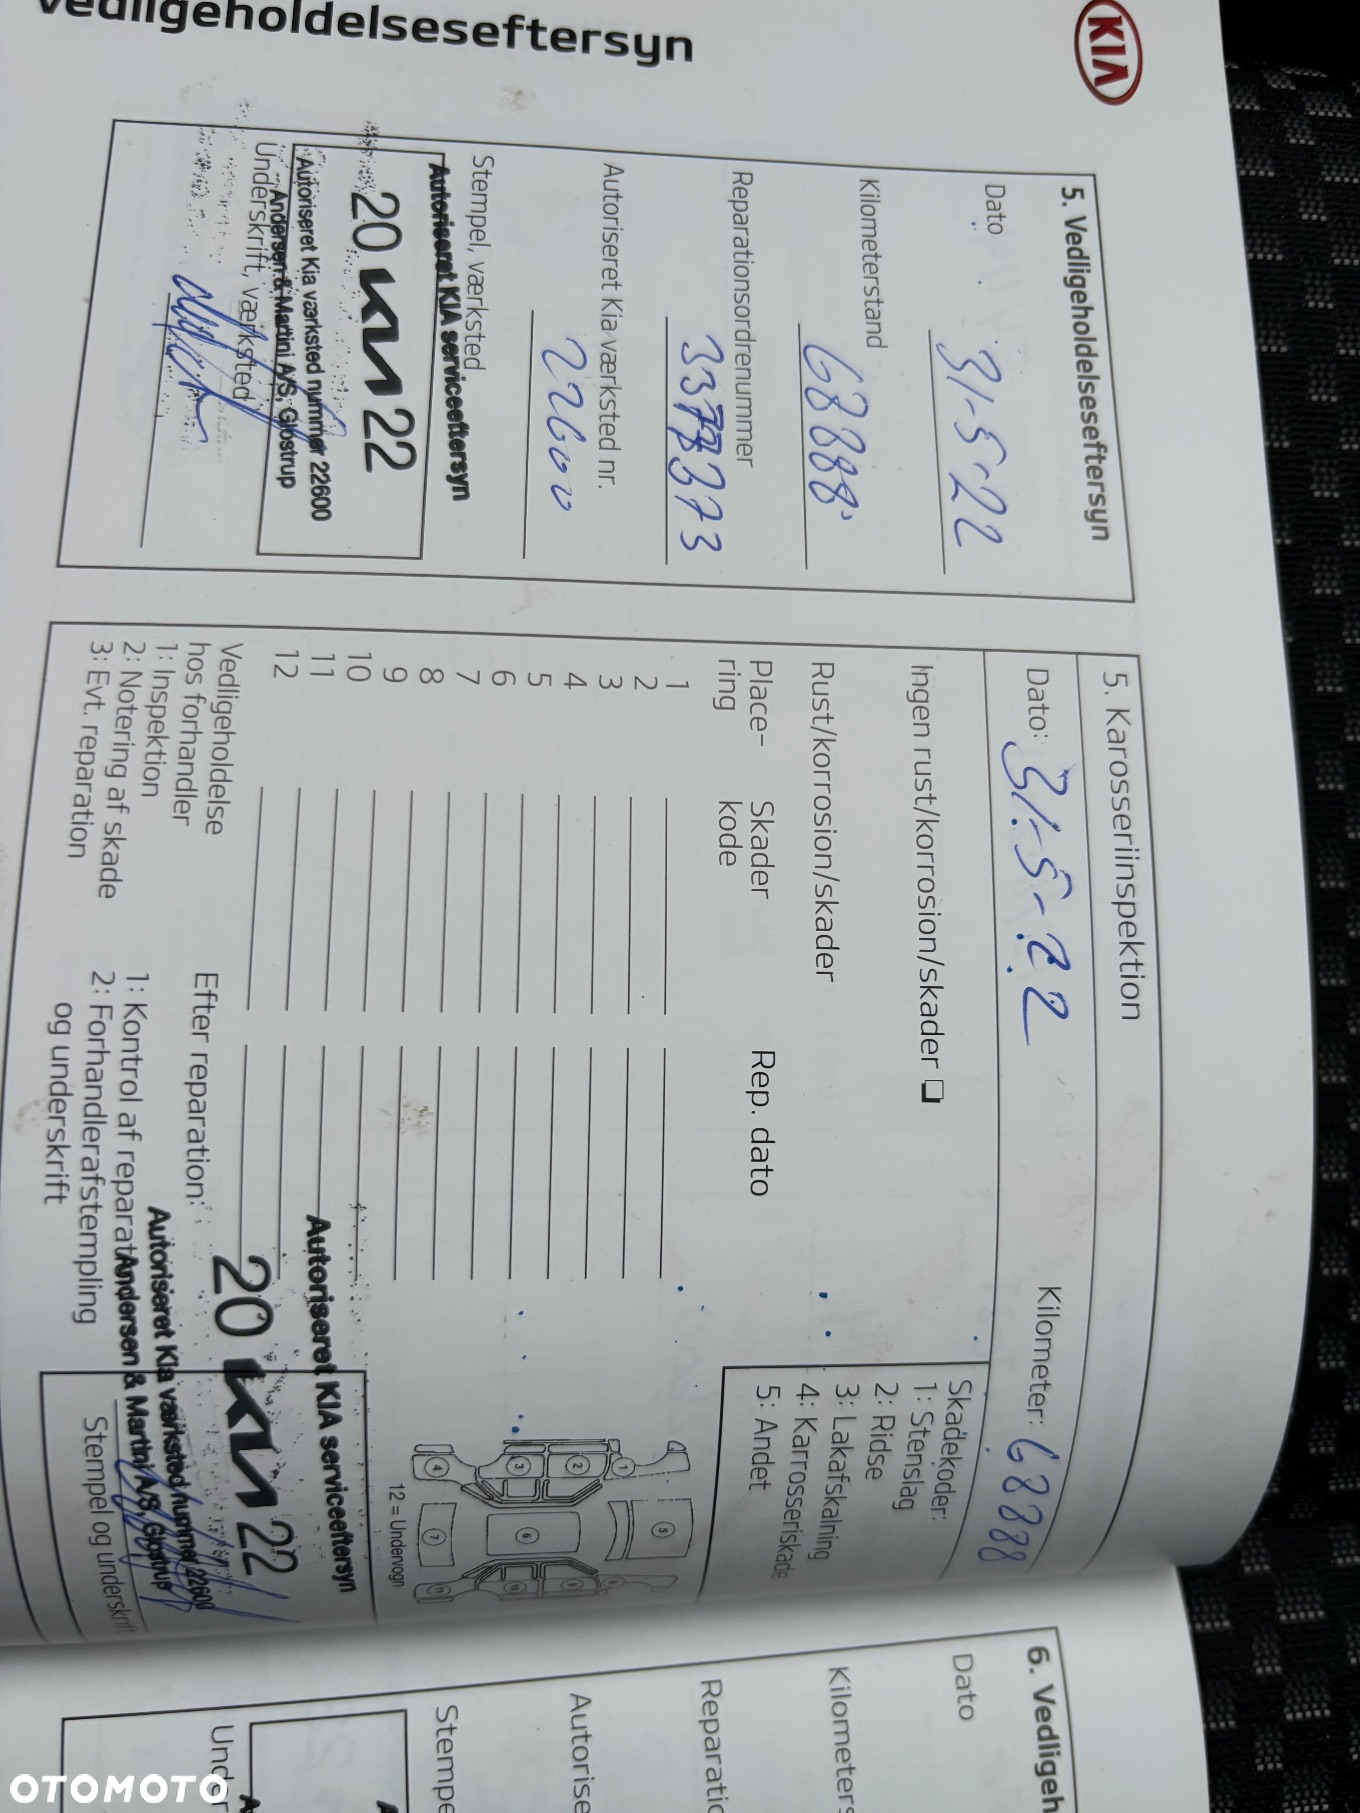 Vedligeholdelseseftersyn
KIA
5. Vedligeholdelseseftersyn
Dato
31-5-22
Kilometerstand
68888
Reparationsordrenummer
Autoriseret Kia værksted nr.
22600
Stempel, værksted
Autoriseret KIA serviceeftersyn
20 KIA 22
Autoriseret Kia værksted nummer 22600
Andersen & Martini A/S, Glostrup
Underskrift, værksted
5. Karosseriinspektion
Dato: 31-5-22
Kilometer: 68888
Ingen rust/korrosion/skader
Rust/korrosion/skader
Skadekoder:
1: Stenslag
2: Ridse
3: Lakafskalning
4: Karrosseriskade
5: Andet
Place-
ring
Skader
kode
Rep. dato
1
2
3
4
5
6
7
8
9
10
11
12
12 = Undervogn
Vedligeholdelse
hos forhandler
1: Inspektion
2: Notering af skade
3: Evt. reparation
Efter reparation:
1: Kontrol af reparat
2: Forhandlerafstempling
og underskrift
Autoriseret KIA serviceeftersyn
20 KIA 22
Autoriseret Kia værksted nummer 22600
Andersen & Martini A/S, Glostrup
Stempel og underskrift
6. Vedligeh
Dato
Kilometers
Reparatio
Autorise
Stempe
Under
OTOMOTO